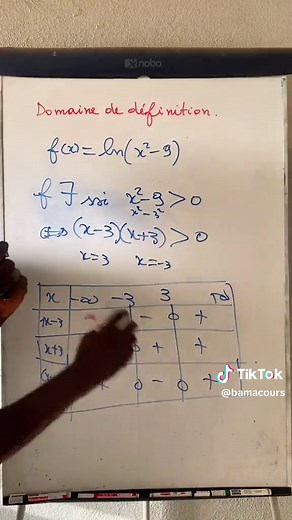 nobo
Domaine de définition.
f(x) = ln(x² - 9)
f ∃ ssi x² - 9 > 0
x² - 3²
⟺ (x-3)(x+3) > 0
x = 3 x = -3
x -∞ -3 3 +∞
x-3 - 0 +
x+3 0 + +
0 - 0 +
TikTok
@bamacours